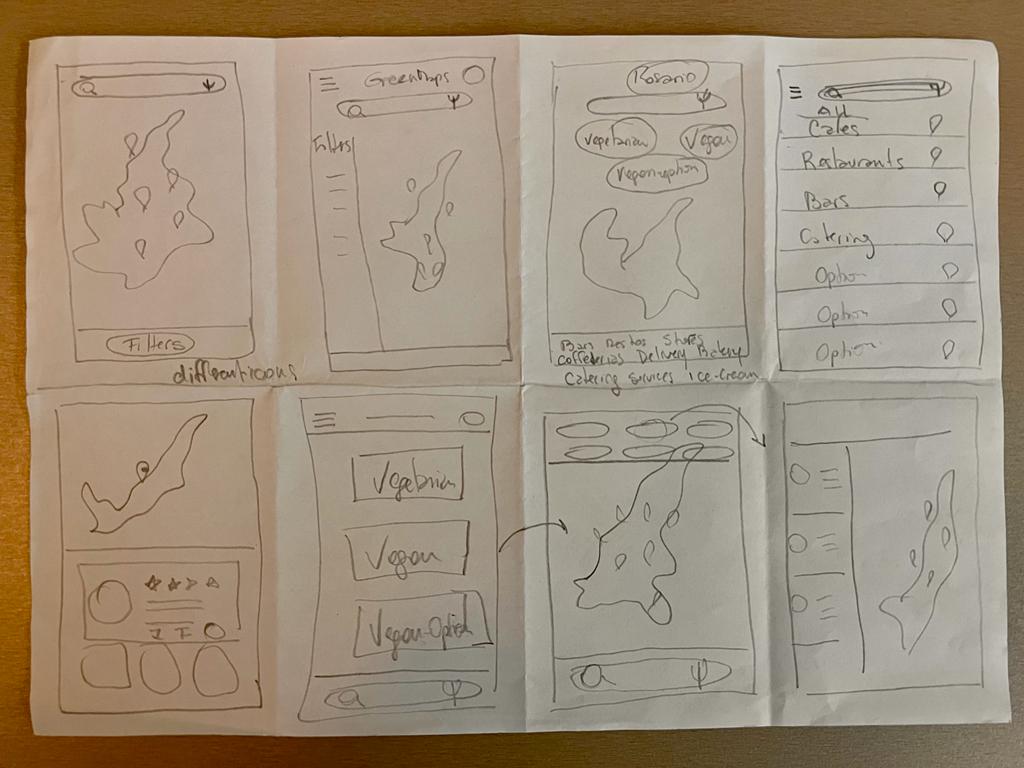 Filters
GreenMaps
Filters
Rosario
Vegetarian
Vegan
Vegan option
Bars Restos Stores
Coffeterias Delivery Bakery
Catering services ice-cream
All
Cafes
Restaurants
Bars
Catering
Option
Option
Option
Vegetarian
Vegan
Vegan-Option